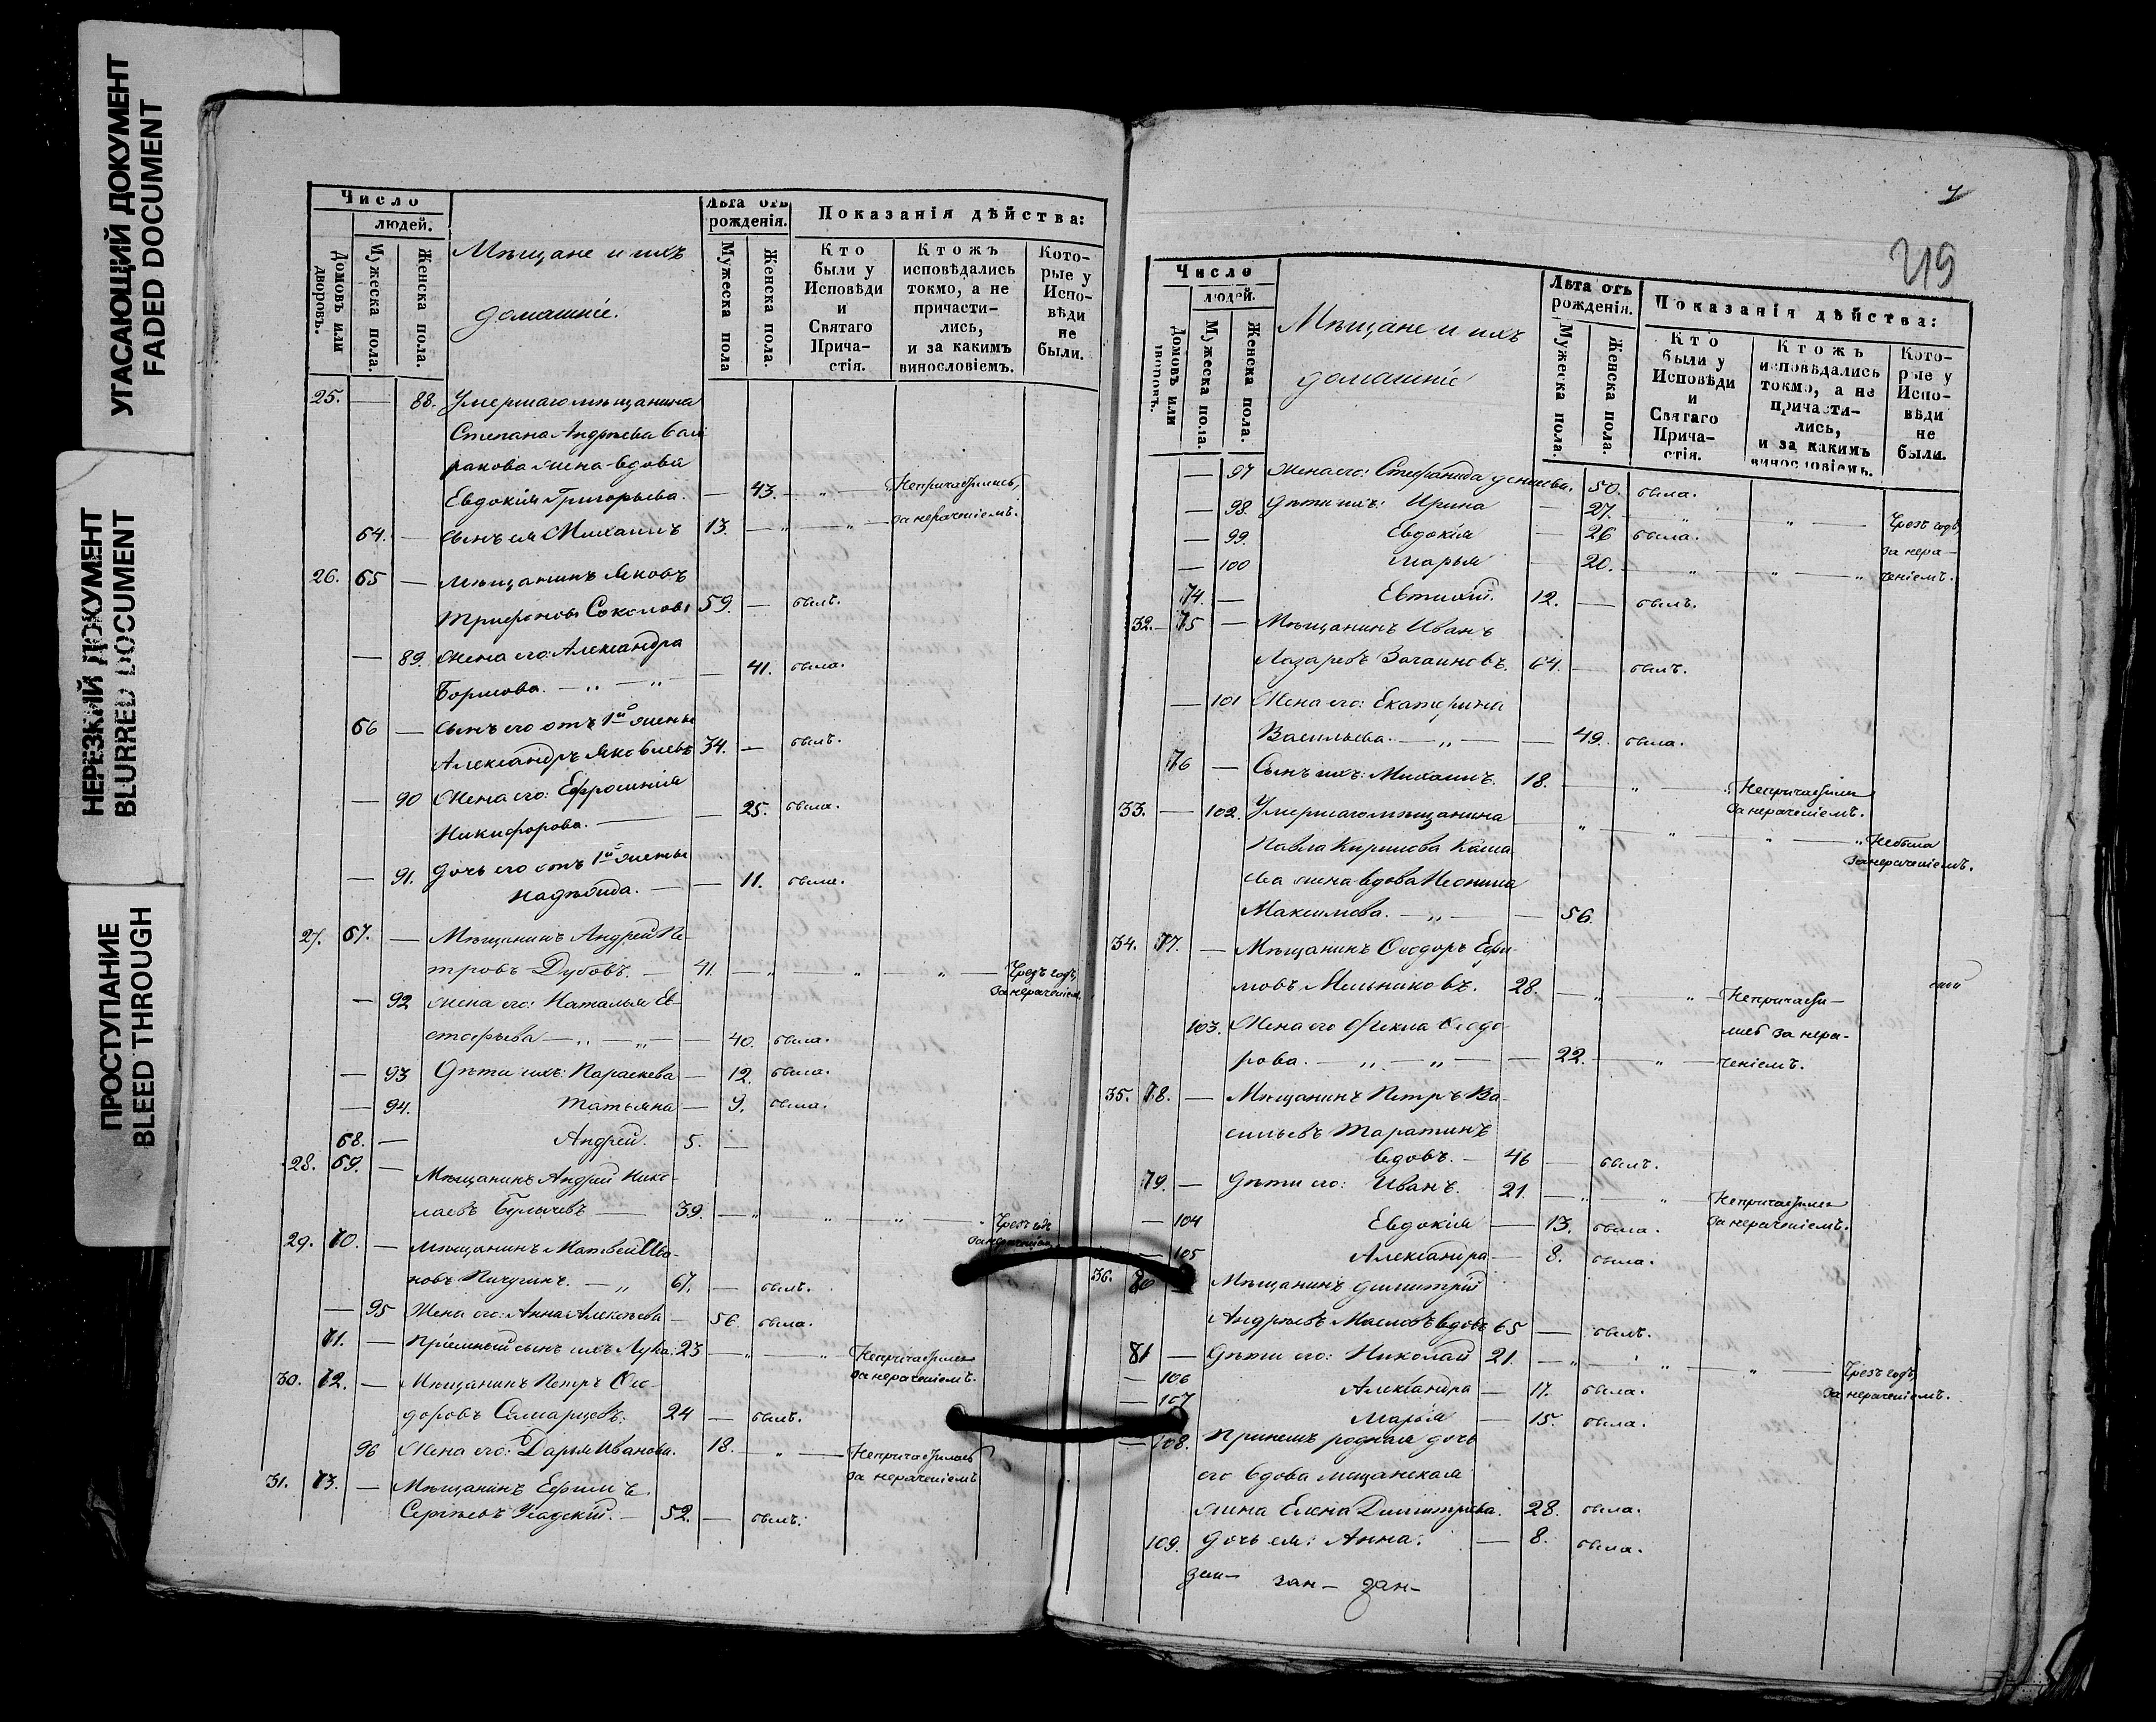 УГАСАЮЩИЙ ДОКУМЕНТ
FADED DOCUMENT
НЕРЕЗКИЙ ДОКУМЕНТ
BLURRED DOCUMENT
ПРОСТУПАНИЕ
BLEED THROUGH
Число
людей.
Домовъ или дворовъ.
Мужеска пола.
Женска пола.
Мѣщане и ихъ
домашніе.
Лѣта отъ
рожденія.
Мужеска пола
Женска пола.
Показанія дѣйства:
Кто
были у
Исповѣди
и
Святаго
Прича-
стія.
Ктожъ
исповѣдались
токмо, а не
причасти-
лись,
и за какимъ
винословіемъ.
Кото-
рые у
Испо-
вѣди
не
были.
25. — 88. Умершаго мѣщанина
Степана Андрѣева
жена вдова
Евдокія Григорьева. — 43. — „ — Непричастились
64. — сынъ ея Михаилъ 13. — „ — „ — за нерачениемъ.
26. 65 — Мѣщанинъ Яковъ
Трифоновъ Соколовъ 59. — былъ.
— 89. Жена его: Александра
Борисова. — „ — „ — 41. была.
66 — сынъ его отъ 1й жены
Александръ Яковлевъ 34. — былъ.
— 90 Жена его: Ефросинія
Никифорова. — — 25. была.
— 91. дочь его отъ 1й жены
Надѣжда. — — 11. была.
27. 67. — Мѣщанинъ Андрей Пе-
тровъ Дубовъ. — 41. — „ — „ — „ — Чрезъ годъ,
за нерачениемъ.
— 92 жена его: Наталья Ев-
стафьева — „ — „ — — 40. была.
— 93 Дѣти ихъ: Параскева — 12. была.
— 94. Татьяна — 9. была.
68. — Андрей. 5. —
28. 69. — Мѣщанинъ Андрей Нико-
лаевъ Булычевъ — 39. — „ „ — „ — „ Чрезъ годъ
за нерачениемъ
29. 70. — Мѣщанинъ Матвей Ива-
новъ Пичугинъ. — „ 67. — былъ.
— 95 Жена его: Анна Алексѣева — 56. была.
71. — Пріемный сынъ ихъ Лука: 23 — „ — „ Непричастился
за нерачениемъ.
30. 72. — Мѣщанинъ Петръ Ѳео-
доровъ Самарцевъ: 24 — былъ.
96 Жена его: Дарья Иванова. 18. — „ — Непричастилась
за нерачениемъ
31. 73. — Мѣщанинъ Ефимъ
Сергѣевъ Усадскій. — 52. — былъ.
219
Число
людей.
Домовъ или дворовъ.
Мужеска пола.
Женска пола.
Мѣщане и ихъ
домашніе
Лѣта отъ
рожденія.
Мужеска пола.
Женска пола.
Показанія дѣйства:
Кто
были у
Исповѣди
и
Святаго
Прича-
стія.
Ктожъ
исповѣдались
токмо, а не
причасти-
лись,
и за какимъ
винословіемъ.
Кото-
рые у
Испо-
вѣди
не
были.
— 97 жена его: Стефанида Денисова. 50. была.
— 98. Дѣти ихъ: Ирина — 27. — „ „ — Чрезъ годъ,
— 99. Евдокія — 26 была. за нера-
— 100 Марья — 20. — „ — „ — „ ченіемъ.
74. — Евтихій. 12. — былъ.
32. — 75 — Мѣщанинъ Иванъ
Лазаревъ 64. — былъ.
— 101 Жена его: Екатерина
Васильева. — „ — — 49. была.
76 — Сынъ ихъ: Михаилъ. 18. — „ — Непричастился
за нерачениемъ.
33. — 102. Умершаго мѣщанина — „ — „ — „ — „ Небыла
за нерачениемъ.
Павла Кирилова
жена вдова Неонила
Максимова. — „ — — 56.
34. 77. — Мѣщанинъ Ѳеодоръ Ефи-
мовъ Мельниковъ. 28. — „ — „ — Непричасти-
лись за нера-
103. Жена его Ѳекла Ѳеодо-
рова. — „ — „ — — 22. — „ — ченіемъ.
35. 78. — Мѣщанинъ Петръ Ва-
сильевъ Таратинъ
вдовъ. — 46 — былъ.
79. — Дѣти его: Иванъ. 21. — „ — „ Непричастился
за нерачениемъ.
— 104 Евдокія — 13. была.
— 105 Александра — 8. была.
36. 80 — Мѣщанинъ Димитрій
Андрѣевъ Масловъ вдовъ 65 — былъ.
81 — Дѣти его: Николай 21. — „ — „ — „ — Чрезъ годъ,
за нерачениемъ.
— 106 Александра — 17. была.
— 107 Марья — 15. была.
— 108. родная дочь
его вдова мѣщанская
жена Елена Димитріева. 28. была.
109. дочь ея: Анна: — 8. была.